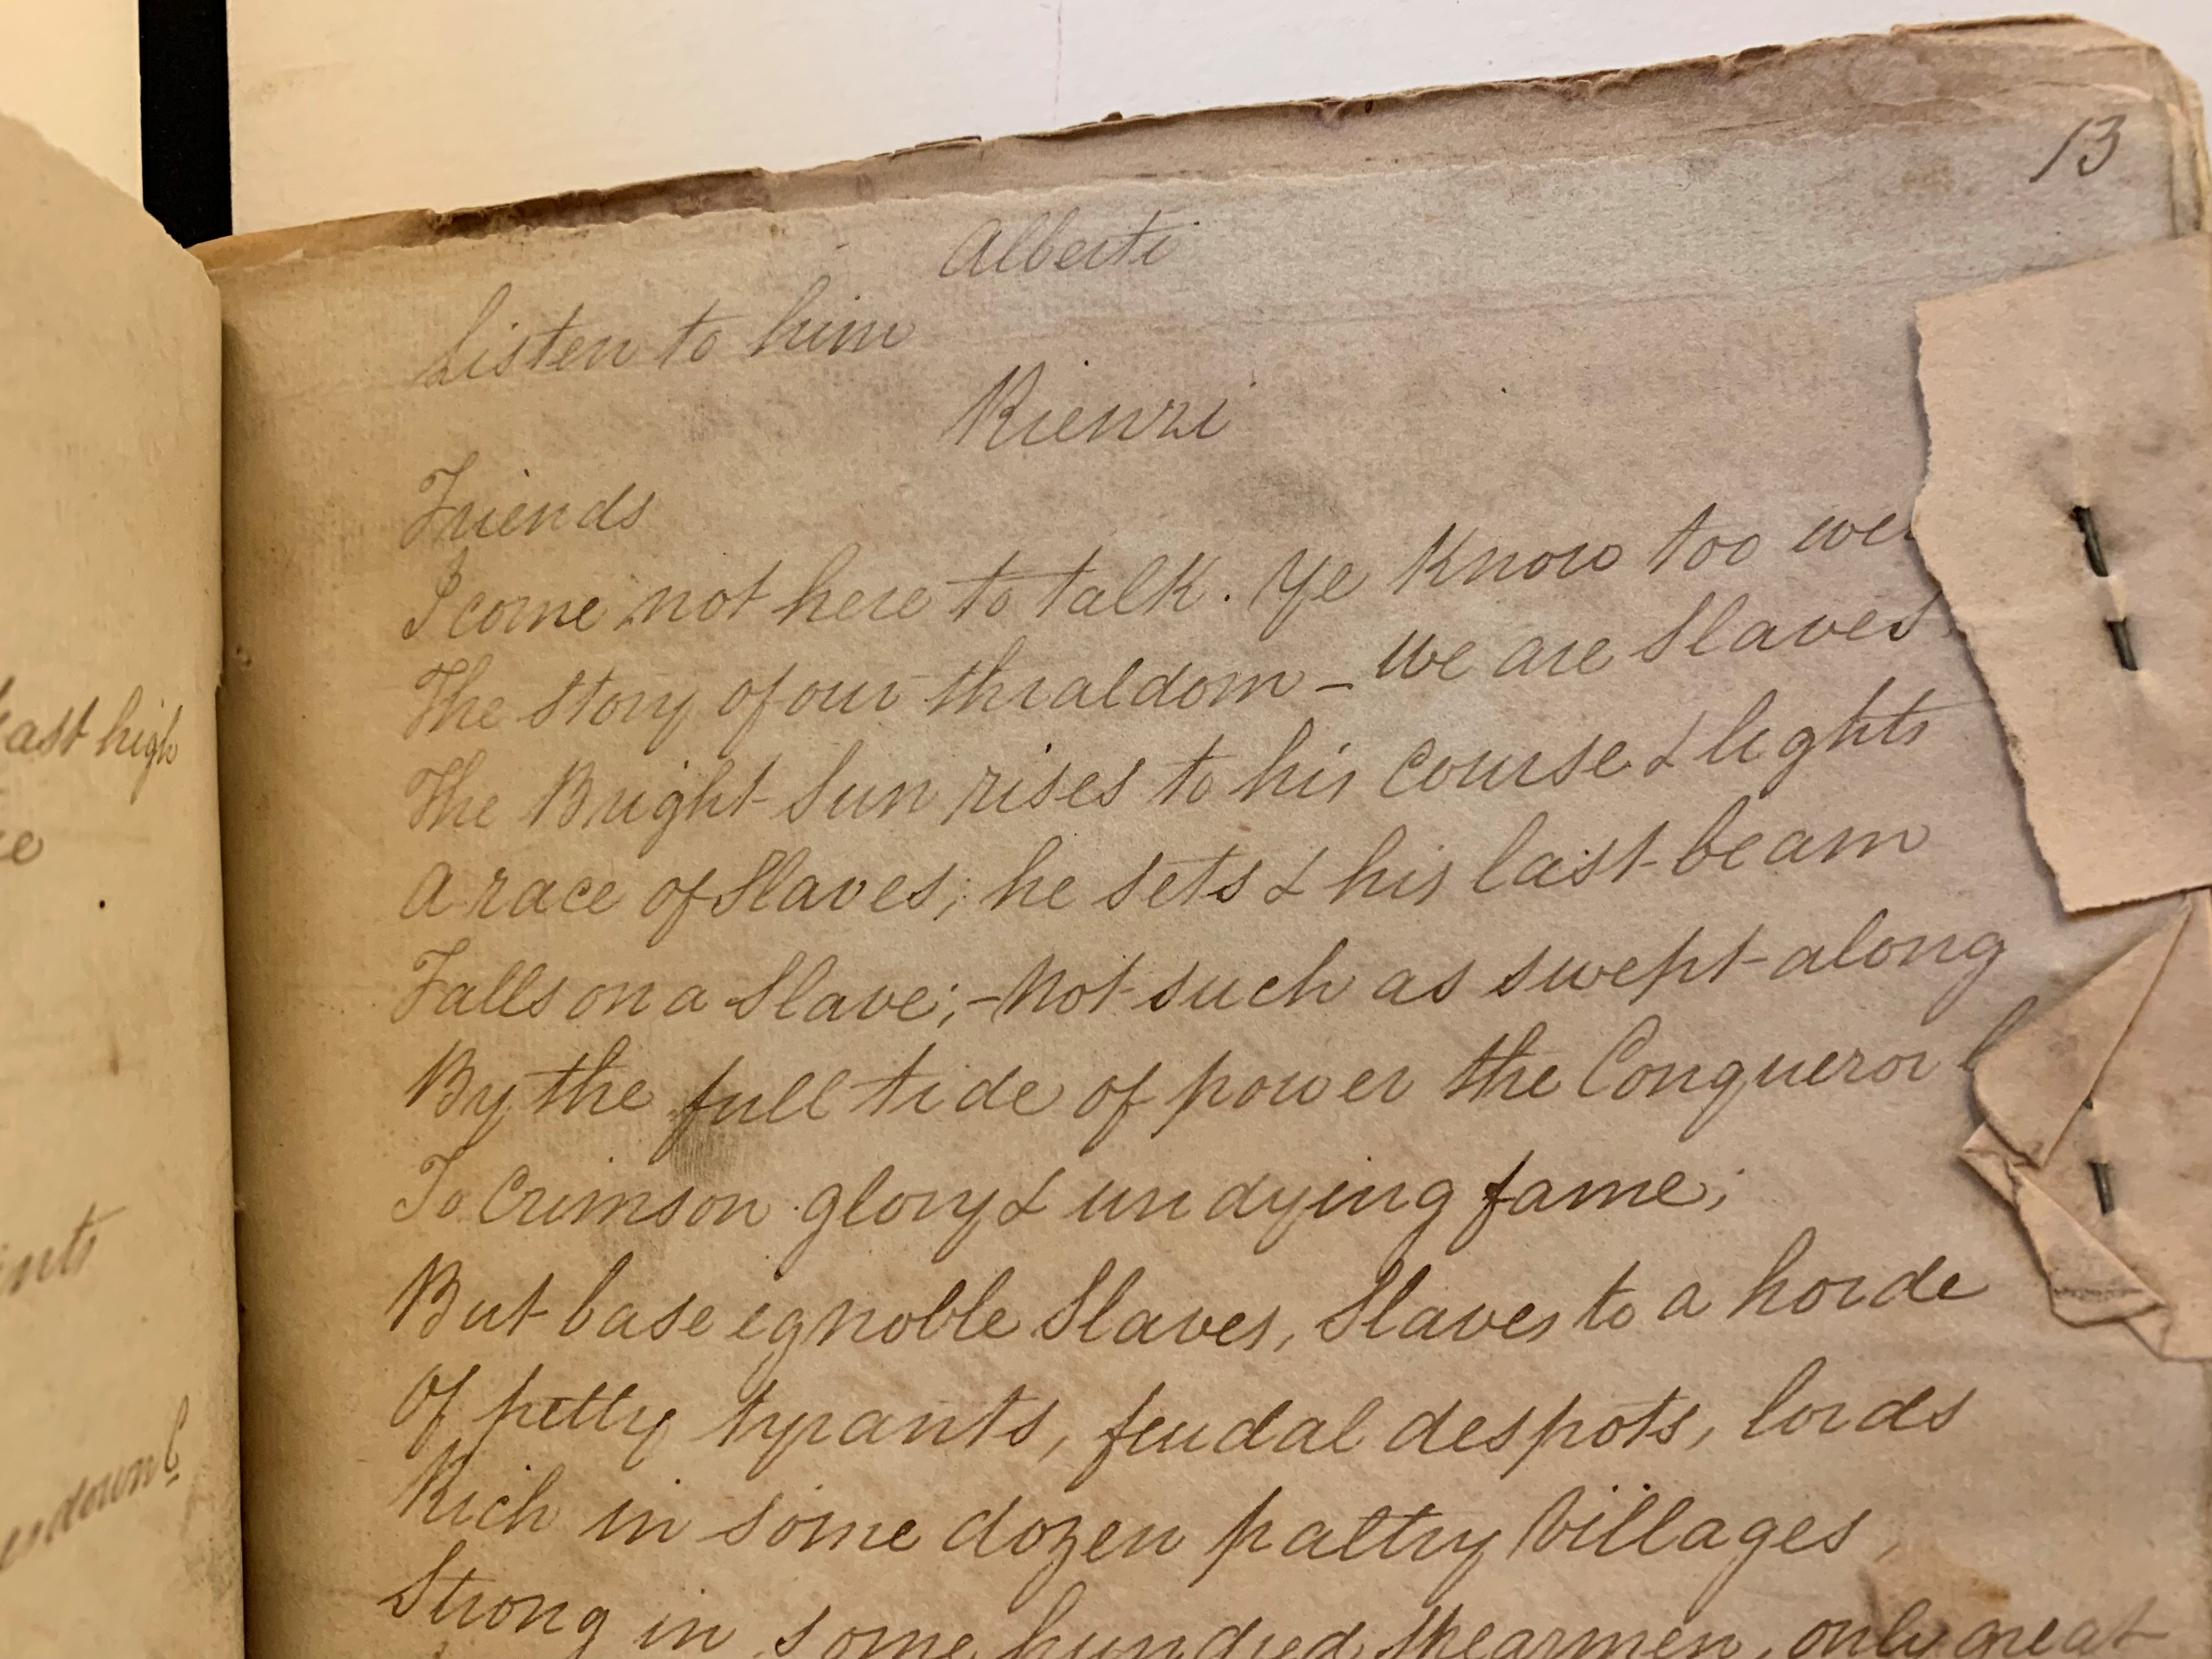 13
Alberti
Listen to him
Rienzi
Friends
I come not here to talk. Ye Know too
The story of our thraldom - we are Slaves
The Bright Sun rises to his Course & lights
A race of Slaves; he sets & his last beam
Falls on a Slave; - Not such as swept along
By the full tide of power the Conqueror
To Crimson glory & undying fame;
But base ignoble Slaves, Slaves to a horde
Of petty tyrants, feudal despots, lords
Rich in some dozen paltry Villages,
Strong in some hundred Spearmen, only great
high